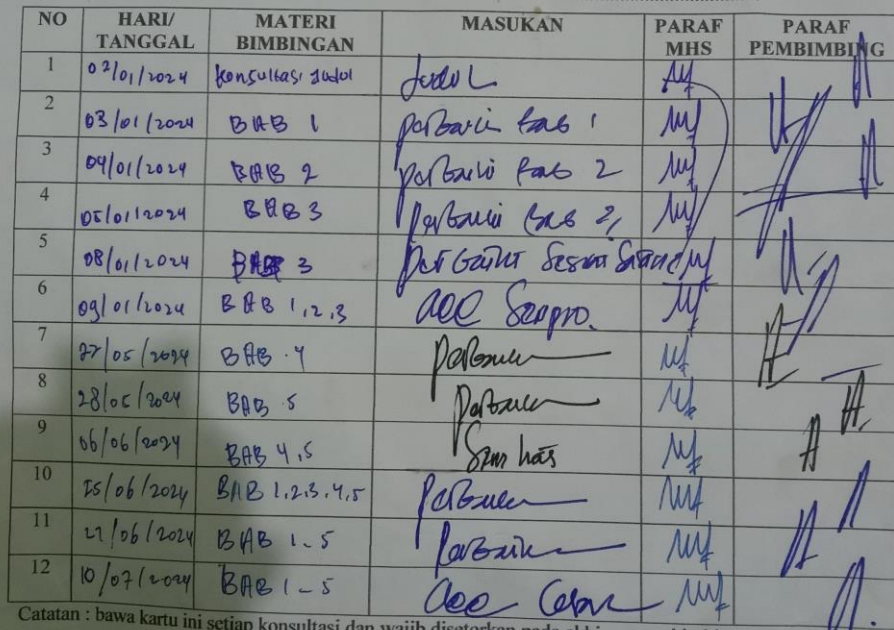 NO HARI/ TANGGAL MATERI BIMBINGAN MASUKAN PARAF MHS PARAF PEMBIMBING
1 02/01/2024 Konsultasi Judul Judul
2 03/01/2024 BAB 1 perbaiki bab 1
3 04/01/2024 BAB 2 perbaiki bab 2
4 05/01/2024 BAB 3 perbaiki bab
5 08/01/2024 BAB 3
6 09/01/2024 BAB 1,2,3 acc Sempro.
7 27/05/2024 BAB 4 perbaiki
8 28/05/2024 BAB 5 perbaiki
9 06/06/2024 BAB 4,5 Sem has
10 /06/2024 BAB 1,2,3,4,5 perbaiki
11 /06/2024 BAB 1-5 perbaiki
12 10/07/2024 BAB 1-5 acc
Catatan : bawa kartu ini setiap konsultasi dan wajib disetorkan pada